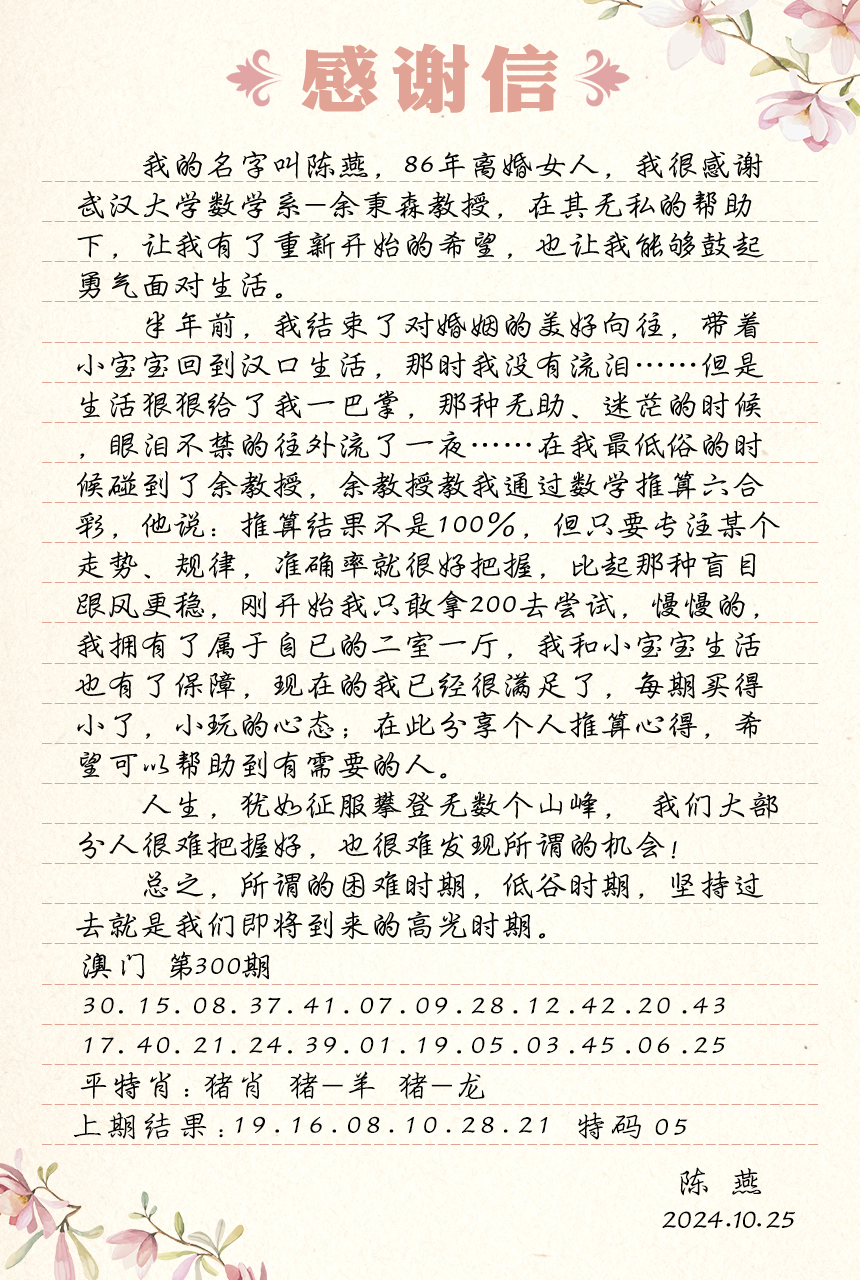 感谢信
我的名字叫陈燕，86年离婚女人，我很感谢
武汉大学数学系—余秉森教授，在其无私的帮助
下，让我有了重新开始的希望，也让我能够鼓起
勇气面对生活。
半年前，我结束了对婚姻的美好向往，带着
小宝宝回到汉口生活，那时我没有流泪……但是
生活狠狠给了我一巴掌，那种无助、迷茫的时候
，眼泪不禁的往外流了一夜……在我最低俗的时
候碰到了余教授，余教授教我通过数学推算六合
彩，他说：推算结果不是100%，但只要专注某个
走势、规律，准确率就很好把握，比起那种盲目
跟风更稳，刚开始我只敢拿200去尝试，慢慢的，
我拥有了属于自已的二室一厅，我和小宝宝生活
也有了保障，现在的我已经很满足了，每期买得
小了，小玩的心态；在此分享个人推算心得，希
望可以帮助到有需要的人。
人生，犹如征服攀登无数个山峰， 我们大部
分人很难把握好，也很难发现所谓的机会！
总之，所谓的困难时期，低谷时期，坚持过
去就是我们即将到来的高光时期。
澳门 第300期
30.15.08.37.41.07.09.28.12.42.20.43
17.40.21.24.39.01.19.05.03.45.06.25
平特肖：猪肖 猪—羊 猪—龙
上期结果：19.16.08.10.28.21 特码 05
陈 燕
2024.10.25